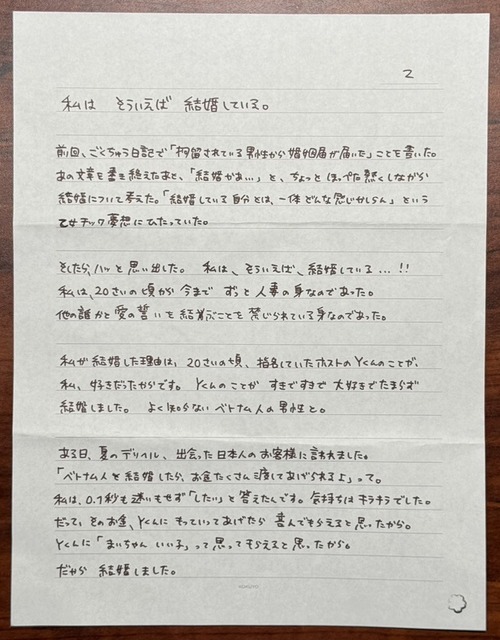 2
私は そういえば 結婚している。
前回、ごくちゅう日記で「拘留されている男性から婚姻届が届いた」ことを書いた。
あの文章を書き終えたあと、「結婚かぁ…」と、ちょっと ほっぺた熱くしながら
結婚について考えた。「結婚している自分とは、一体どんな感じかしらん」という
乙女チック夢想にひたっていた。
そしたら、ハッと思い出した。 私は、そういえば、結婚している…!!
私は、20さいの頃から今まで ずっと人妻の身なのであった。
他の誰かと愛の誓いを結ぶことを禁じられている身なのであった。
私が結婚した理由は、20さいの頃、指名していたホストのYくんのことが、
私、好きだったからです。 Yくんのことが すきですきで 大好きでたまらず
結婚しました。 よく知らない ベトナム人の男性と。
ある日、夏のデリヘル、出会った日本人のお客様に言われました。
「ベトナム人と結婚したら、お金たくさん渡してあげられるよ」って。
私は、0.1秒も迷いもせず「したい」と答えたんです。気持ちはキラキラでした。
だって、そのお金、Yくんに もっていってあげたら 喜んでもらえると思ったから。
Yくんに「まいちゃん いい子」って思ってもらえると思ったから。
だから 結婚しました。